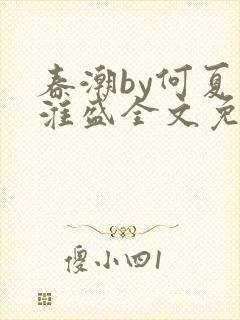 春潮by何夏
淮盛全文免
傻小四1